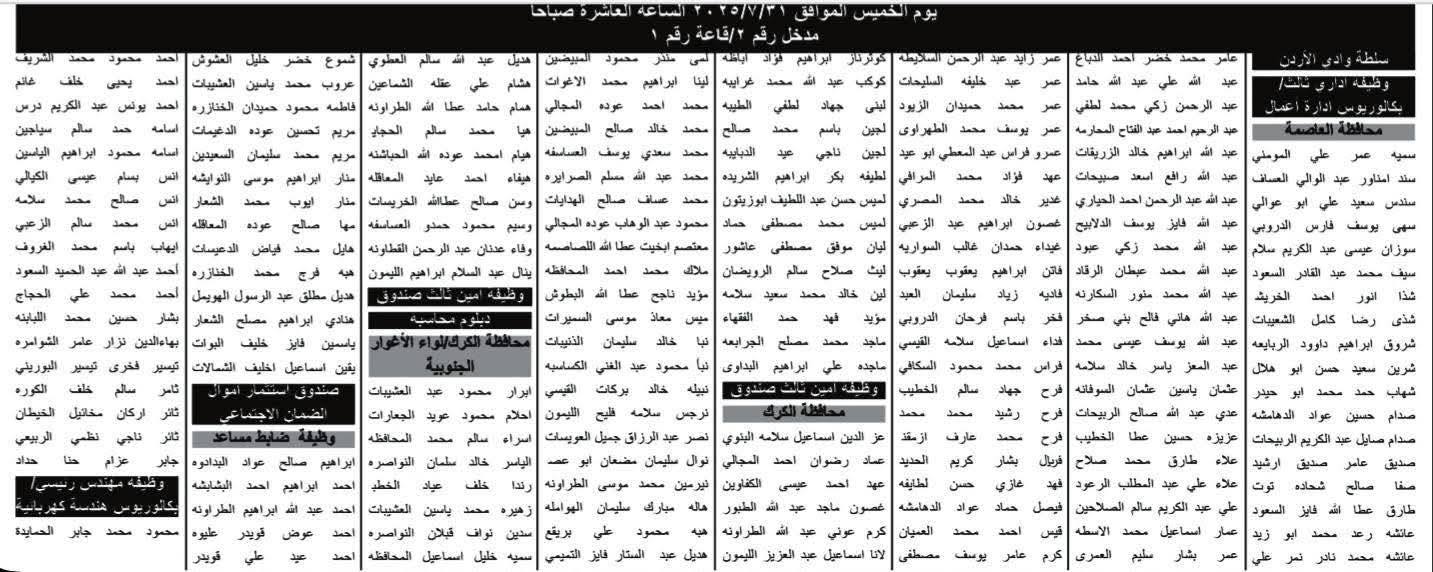 يوم الخميس الموافق ٢٠٢٥/٧/٣١ الساعه العاشرة صباحا
مدخل رقم ٢/قاعة رقم ١
سلطة وادي الأردن
وظيفه اداري ثالث/
بكالوريوس ادارة أعمال
محافظة العاصمة
سميه عمر علي المومني
سند امناور عبد الوالي العساف
سندس سعيد علي ابو عوالي
سهى يوسف فارس الدروبي
سوزان عيسى عبد الكريم سلام
سيف محمد عبد القادر السعود
شذا انور احمد الخريشه
شذى رضا كامل الشعيبات
شروق ابراهيم داوود الربايعه
شرين سعيد حسن ابو هلال
شهاب حمد محمد ابو حيدر
صدام حسين عواد الدهامشه
صدام صايل عبد الكريم الربيحات
صديق عامر صديق ارشيد
صفا صالح شحاده توت
طارق عطا الله فايز السعود
عائشه رعد محمد ابو زيد
عائشه محمد نادر نمر علي
عامر محمد خضر احمد الدباغ
عبد الله علي عبد الله حامد
عبد الرحمن زكي محمد لطفي
عبد الرحيم احمد عبد الفتاح المحارمه
عبد الله ابراهيم خالد الزريقات
عبد الله رافع اسعد صبيحات
عبد الله عبد الرحمن احمد الحياري
عبد الله فايز يوسف الدلابيح
عبد الله محمد زكي عبود
عبد الله محمد عبطان الرقاد
عبد الله محمد منور السكارنه
عبد الله هاني فالح بني صخر
عبد الله يوسف عيسى محمد
عبد المعز ياسر خالد سلامه
عثمان ياسين عثمان السوفانه
عدي عبد الله صالح الربيحات
عزيزه حسين عطا الخطيب
علاء طارق محمد صلاح
علاء علي عبد المطلب الرعود
علي عبد الكريم سالم الصلاحين
عمار اسماعيل محمد الاسطه
عمر بشار سليم العمري
عمر زايد عبد الرحمن السلايطه
عمر عبد خليفه السليحات
عمر محمد حميدان الزيود
عمر يوسف محمد الطهراوى
عمرو فراس عبد المعطي ابو عيد
عهد فؤاد محمد المرافي
غدير خالد محمد المصري
غصون ابراهيم عبد الزعبي
غيداء حمدان غالب السواريه
فاتن ابراهيم يعقوب يعقوب
فاديه زياد سليمان العبد
فخر باسم فرحان الدروبي
فداء اسماعيل سلامه القيسي
فراس محمد محمود السكافي
فرح جهاد سالم الخطيب
فرح رشيد محمد محمد
فرح محمد عارف ازمقند
فريال بشار كريم الحديد
فهد غازي حسن لطايفه
فيصل حماد عواد الدهامشه
قيس احمد محمد العميان
كرم عامر يوسف مصطفى
كوثرناز ابراهيم فؤاد اباظه
كوكب عبد الله محمد غرايبه
لبنى جهاد لطفي الطيبه
لجين باسم محمد صالح
لجين ناجي عيد الدبايبه
لطيفه بكر ابراهيم الشريده
لميس حسن عبد اللطيف ابوزيتون
لميس محمد مصطفى حماد
ليان موفق مصطفى عاشور
ليث صلاح سالم الرويضان
لين خالد محمد سعيد سلامه
مؤيد فهد حمد الفقهاء
ماجد محمد مصلح الجرابعه
ماجده علي ابراهيم البداوى
وظيفه امين ثالث صندوق
محافظة الكرك
عز الدين اسماعيل سلامه البنوي
عماد رضوان احمد المجالي
عهد احمد عيسى الكفاوين
غصون ماجد عبد الله الطبور
كرم عوني عبد الله الطراونه
لانا اسماعيل عبد العزيز الليمون
لمى منذر محمود المبيضين
لينا ابراهيم محمد الاغوات
محمد احمد عوده المجالي
محمد خالد صالح المبيضين
محمد سعدي يوسف العساسفه
محمد عبد الله مسلم الصرايره
محمد عساف صالح الهدايات
محمود عبد الوهاب عوده المجالي
معتصم ابخيت عطا الله اللصاصمه
ملاك محمد احمد المحافظه
مؤيد ناجح عطا الله البطوش
ميس معاذ موسى السميرات
نبا خالد سليمان الذنيبات
نبأ محمود عبد الغني الكساسبه
نبيله خالد بركات القيسي
نرجس سلامه فليح الليمون
نصر عبد الرزاق جميل العويسات
نوال سليمان مضعان ابو عصـ
نيرمين محمد موسى الطراونه
هاله مبارك سليمان الهوامله
هبه محمود علي بريقع
هديل عبد الستار فايز التميمي
هديل عبد الله سالم العطوي
هشام علي عقله الشماعين
همام حامد عطا الله الطراونه
هيا محمد سالم الحجايا
هيام امحمد عوده الله الحباشنه
هيفاء احمد عايد المعاقله
وسن صالح عطاالله الخريسات
وسيم محمود حمدو العساسفه
وفاء عدنان عبد الرحمن القطاونه
ينال عبد السلام ابراهيم الليمون
وظيفه امين ثالث صندوق
دبلوم محاسبه
محافظة الكرك/لواء الأغوار
الجنوبية
ابرار محمود عبد العشيبات
احلام محمود عويد الجعارات
اسراء سالم محمد المحافظه
الياسر خالد سلمان النواصره
رندا خلف عياد الخطبا
زهيره محمد ياسين العشيبات
سدين نواف قبلان النواصره
سميه خليل اسماعيل المحافظه
شموع خضر خليل العشوش
عروب محمد ياسين العشيبات
فاطمه محمود حميدان الخنازره
مريم تحسين عوده الدغيمات
مريم محمد سليمان السعيدين
منار ابراهيم موسى النوايشه
منار ايوب محمد الشعار
مها صالح عوده المعاقله
هايل محمد فياض الدعيسات
هبه فرج محمد الخنازره
هديل مطلق عبد الرسول الهويمل
هنادي ابراهيم مصلح الشعار
ياسمين فايز خليف البوات
يقين اسماعيل اخليف الشمالات
صندوق استثمار اموال
الضمان الاجتماعي
وظيفة ضابط مساعد
ابراهيم صالح عواد البدادوه
احمد ابراهيم احمد البشابشه
احمد عبد الله ابراهيم الطراونه
احمد عوض قويدر عليوه
احمد عيد علي قويدر
احمد محمود محمد الشريف
احمد يحيى خلف غانم
احمد يونس عبد الكريم درس
اسامه حمد سالم سياجين
اسامه محمود ابراهيم الياسين
انس بسام عيسى الكيالي
انس صالح محمد سلامه
انس محمد سالم الزعبي
ايهاب باسم محمد الغروف
أحمد عبد الله عبد الحميد السعود
أحمد محمد علي الحجاج
بشار حسين محمد اللبابنه
بهاءالدين نزار عامر الشوامره
تيسير فخري تيسير البوريني
ثامر سالم خلف الكوره
ثائر اركان مخاتيل الخيطان
ثائر ناجي نظمي الربيعي
جابر عزام حنا حداد
وظيفه مهندس رئيسي/
بكالوريوس هندسة كهربائية
محمود محمد جابر الحمايدة